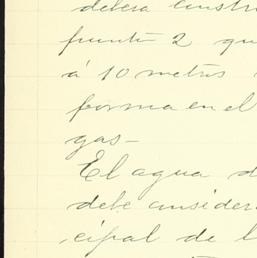 deberá constru
punto 2 qu
á 10 metros
forma en el
gas-
El agua d
debe consider
cipal de l